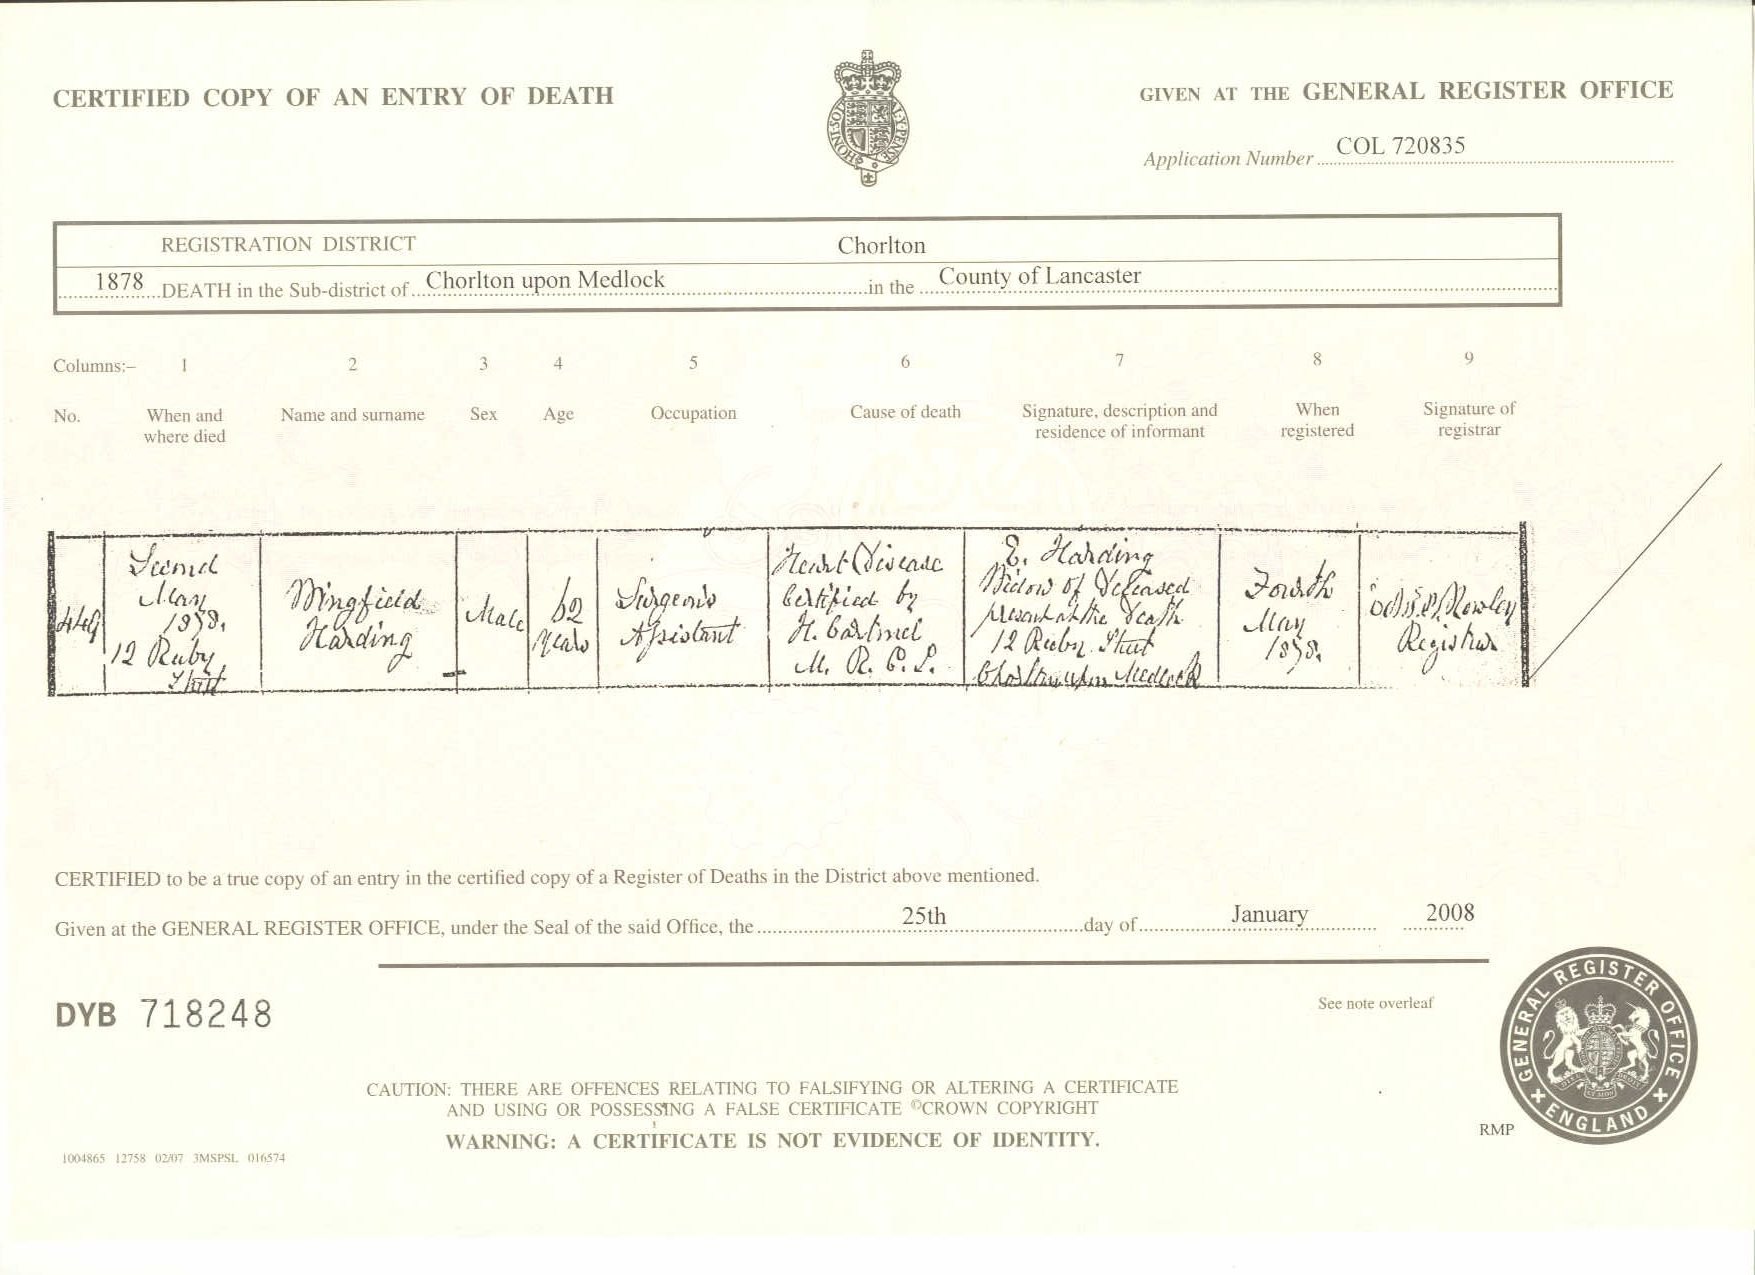 CERTIFIED COPY OF AN ENTRY OF DEATH
GIVEN AT THE GENERAL REGISTER OFFICE
Application Number COL 720835
REGISTRATION DISTRICT Chorlton
1878 DEATH in the Sub-district of Chorlton upon Medlock in the County of Lancaster
Columns:– 1 2 3 4 5 6 7 8 9
No. When and where died Name and surname Sex Age Occupation Cause of death Signature, description and residence of informant When registered Signature of registrar
449
Second
May
1878.
12 Ruby
Street
Wingfield
Harding
Male
62
years
Surgeon's
Assistant
Heart Disease
Certified by
H. Cartmel
M. R. C. S.
E. Harding
Widow of Deceased
present at the Death
12 Ruby Street
Chorlton upon Medlock
Fourth
May
1878.
Rowley
Registrar
CERTIFIED to be a true copy of an entry in the certified copy of a Register of Deaths in the District above mentioned.
Given at the GENERAL REGISTER OFFICE, under the Seal of the said Office, the 25th day of January 2008
DYB 718248
See note overleaf
CAUTION: THERE ARE OFFENCES RELATING TO FALSIFYING OR ALTERING A CERTIFICATE
AND USING OR POSSESSING A FALSE CERTIFICATE ©CROWN COPYRIGHT
WARNING: A CERTIFICATE IS NOT EVIDENCE OF IDENTITY.
1004865 12758 02/07 3MSPSL 016574
RMP
GENERAL REGISTER OFFICE
ENGLAND